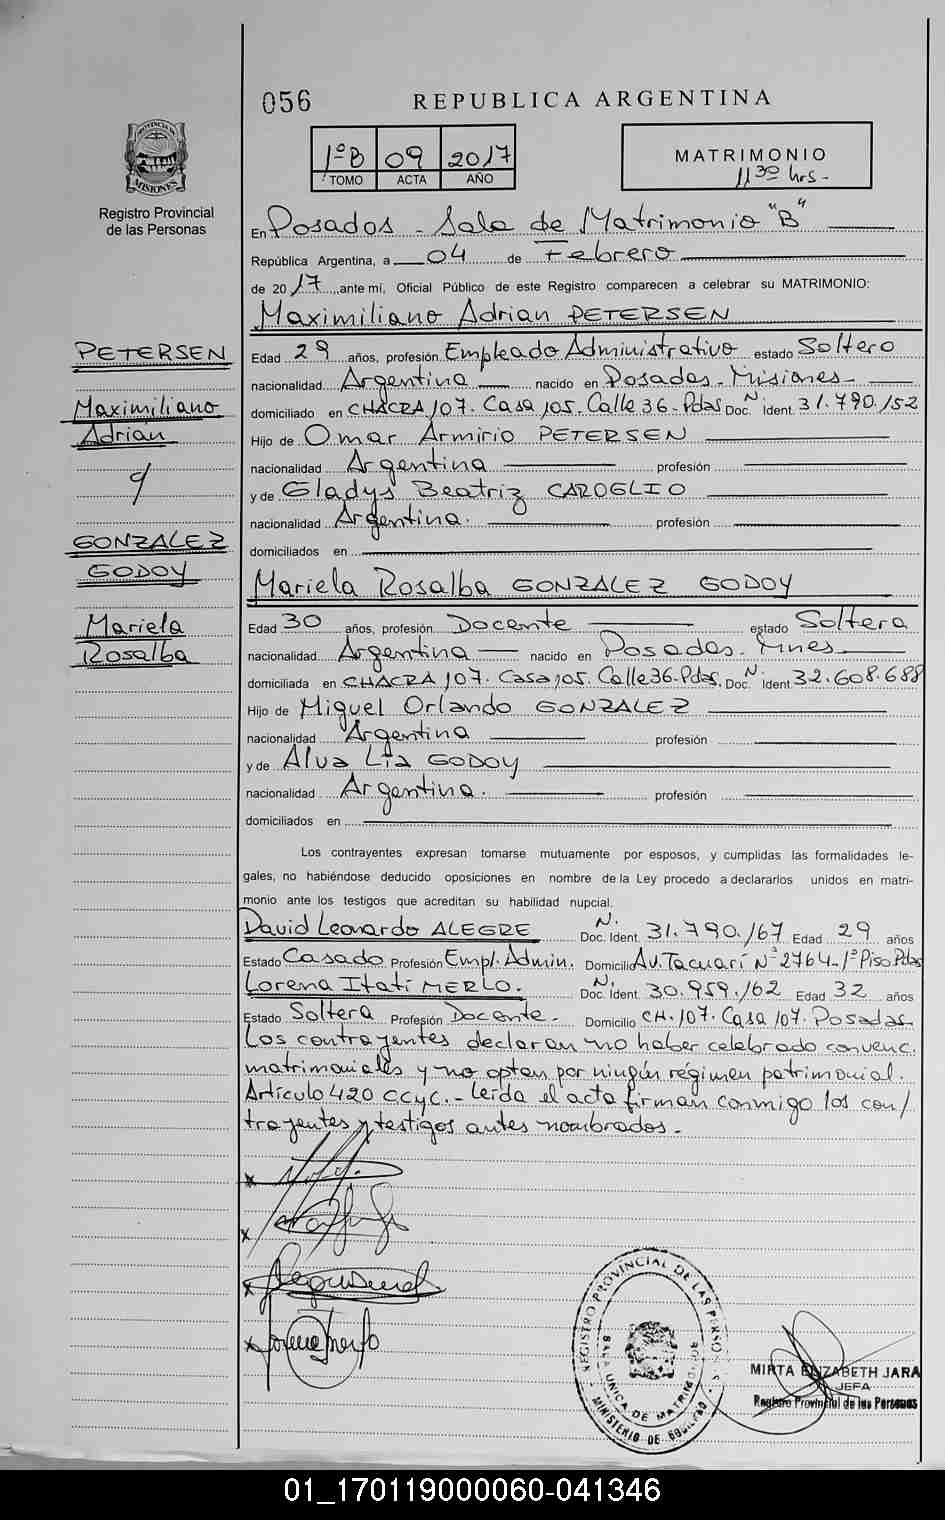 056
REPUBLICA ARGENTINA
PROVINCIA DE MISIONES
Registro Provincial
de las Personas
1ºB 09 2017
TOMO ACTA AÑO
MATRIMONIO
11 30 hrs-
En Posadas - Sala de Matrimonio "B"
República Argentina, a 04 de Febrero
de 2017, ante mí, Oficial Público de este Registro comparecen a celebrar su MATRIMONIO:
Maximiliano Adrian PETERSEN
PETERSEN
Maximiliano
Adrian
y
GONZALEZ
GODOY
Mariela
Rosalba
Edad 29 años, profesión Empleado Administrativo estado Soltero
nacionalidad Argentina nacido en Posadas-Misiones-
domiciliado en CHACRA 107. Casa 105. Calle 36-Pdas Doc. Nº Ident. 31.790.152
Hijo de Omar Armirio PETERSEN
nacionalidad Argentina profesión
y de Gladys Beatriz CAROGLIO
nacionalidad Argentina. profesión
domiciliados en
Mariela Rosalba GONZALEZ GODOY
Edad 30 años, profesión Docente estado Soltera
nacionalidad Argentina nacido en Posadas-Mnes
domiciliada en CHACRA 107. Casa 105. Calle 36-Pdas. Doc. N Ident. 32.608.688
Hijo de Miguel Orlando GONZALEZ
nacionalidad Argentina profesión
y de Alva Lía GODOY
nacionalidad Argentina. profesión
domiciliados en
Los contrayentes expresan tomarse mutuamente por esposos, y cumplidas las formalidades le-
gales, no habiéndose deducido oposiciones en nombre de la Ley procedo a declararlos unidos en matri-
monio ante los testigos que acreditan su habilidad nupcial.
David Leonardo ALEGRE Doc. N. Ident. 31.790.167 Edad 29 años
Estado Casado Profesión Empl. Admin. Domicilio Av. Tacuarí Nº 2764-1º Piso Pdas
Lorena Itatí MERLO. Doc. N. Ident. 30.959.162 Edad 32 años
Estado Soltera Profesión Docente. Domicilio CH. 107. Casa 107. Posadas.
Los contrayentes declaran no haber celebrado convenc.
matrimoniales y no optan por ningún régimen patrimonial.
Artículo 420 CCyC.- Leída el acta firman conmigo los con/
trayentes y testigos antes nombrados.-
REGISTRO PROVINCIAL DE LAS PERSONAS
SALA UNICA DE MATRIMONIO
MINISTERIO DE GOBIERNO
MIRTA ELIZABETH JARA
JEFA
Registro Provincial de las Personas
01_170119000060-041346